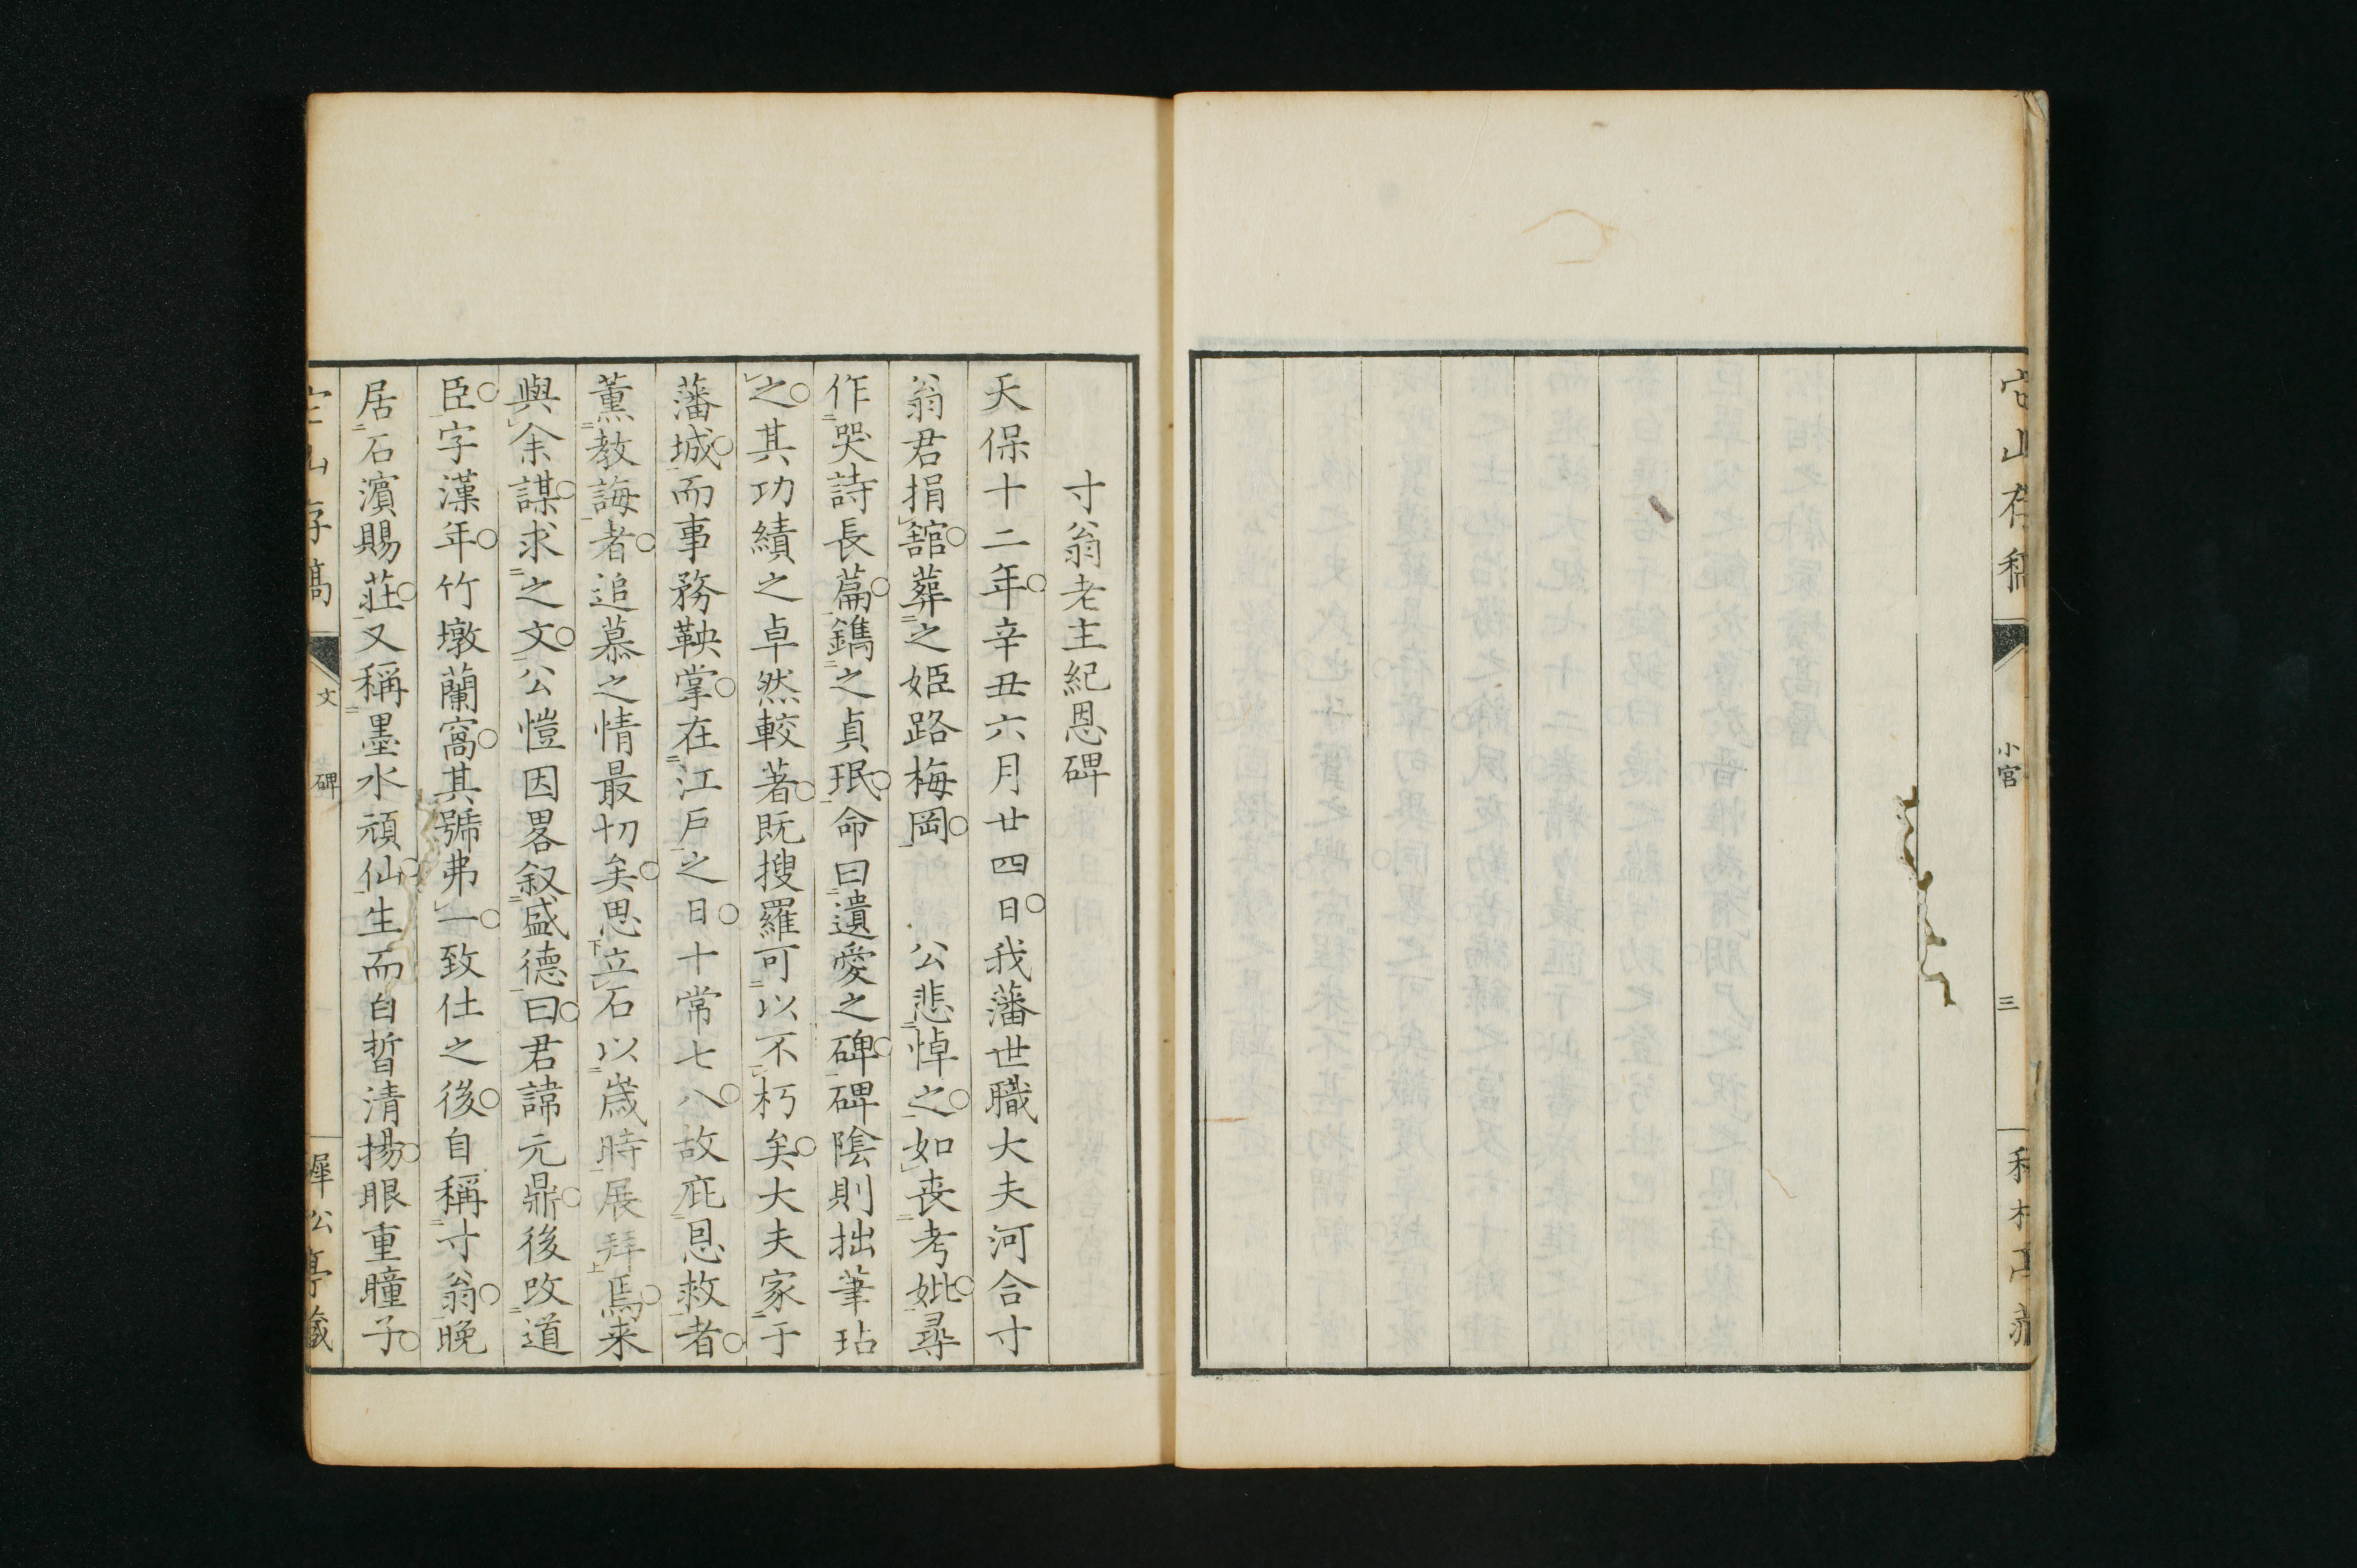 小宮
三
寸翁老主紀恩碑
天保十二年辛丑六月廿四日我藩世職大夫河合寸
翁君捐舘葬之姫路梅岡　公悲悼之如喪考妣尋
作哭詩長篇鐫之貞珉命曰遺愛之碑碑陰則拙筆玷
之其功績之卓然較著既搜羅可以不朽矣大夫家于
藩城而事務鞅掌在江戸之日十常七八故庇恩救者
薫教誨者追慕之情最切矣思立石以歳時展拜焉来
與余謀求之文公愷因畧叙盛德曰君諱元鼎後改道
臣字漢年竹墩蘭窩其號弗一致仕之後自稱寸翁晩
居石濵賜莊又稱墨水頑仙生而白皙清揚眼重瞳子
文
碑